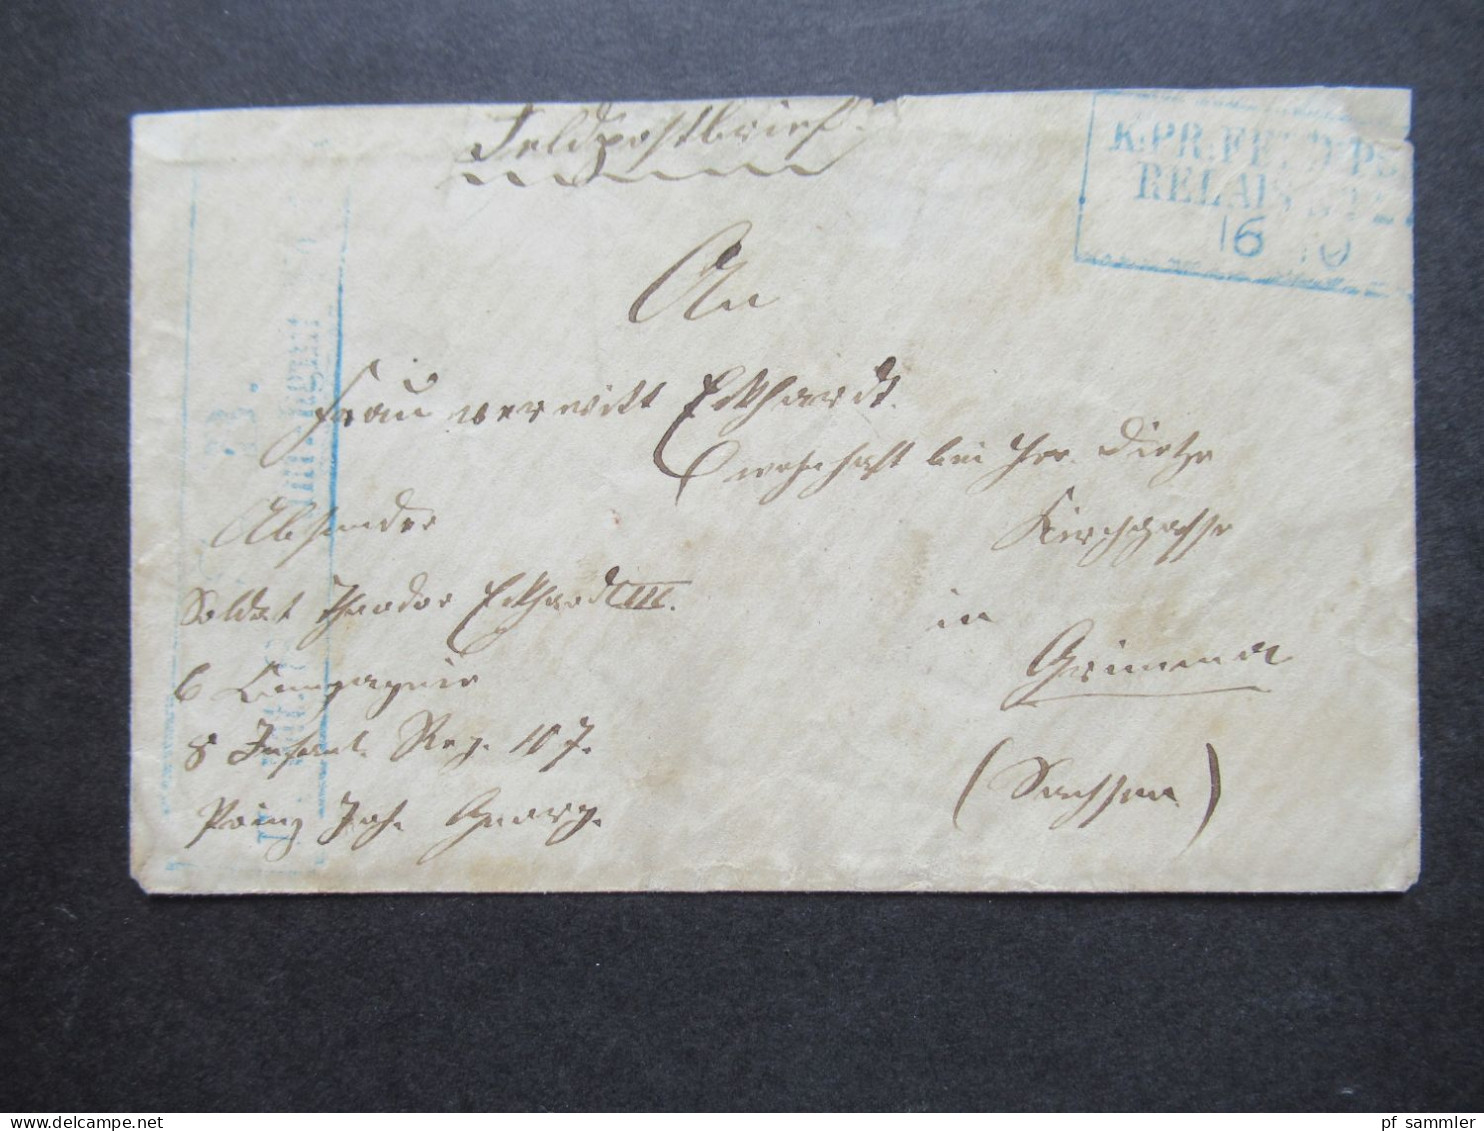 Feldpostbrief.
K.PR.FELDPO
RELAIS
16 10
An
Frau verwitt Eckhardt.
wohnhaft bei Her. Dietze
Kirchgasse
in
Grimma
(Sachsen)
Absender
Soldat Theodor Eckhardt III.
6 Compagnie
8 Infant. Reg. 107.
Prinz Joh. Georg.
pf_sammler